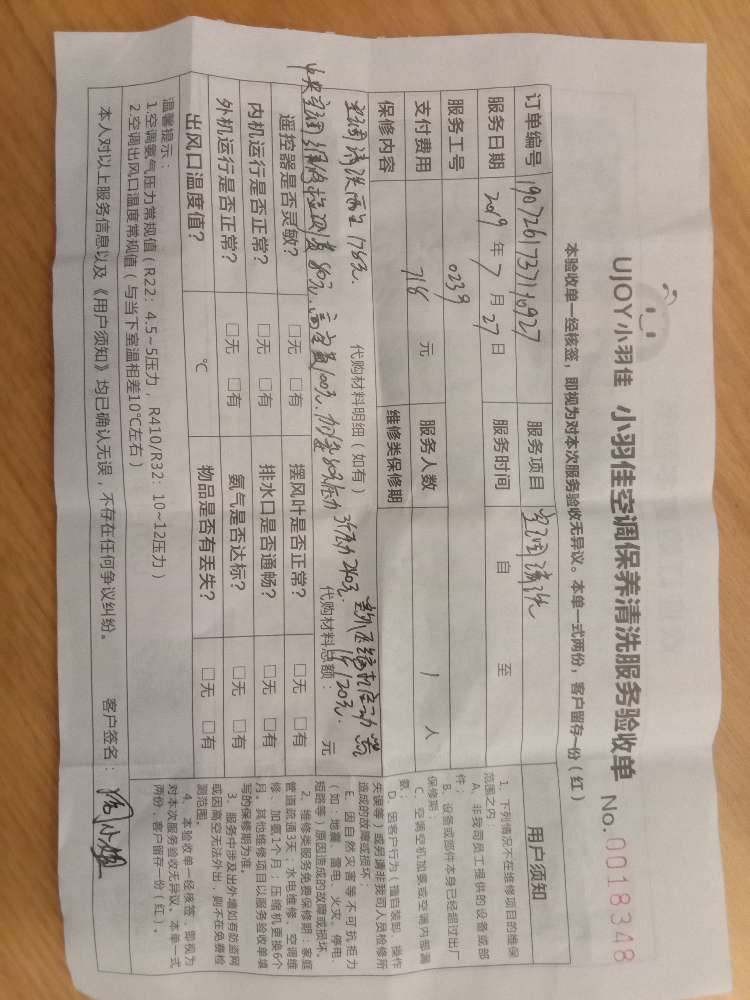 UJOY小羽佳 小羽佳空调保养清洗服务验收单 No.0018348
本验收单一经核签，即视为对本次服务验收无异议。本单一式两份，客户留存一份（红）
订单编号 服务项目 空调清洗
服务日期 2019 年 7 月 27 日 服务时间 自 至
服务工号 0239
支付费用 718 元 服务人数 1 人
保修内容 维修类保修期
空调清洗两台178元. 代购材料明细（如有）
中央空调 检测费80元. 高空费100元. 加氨80元/压力 3个压力240元. 代购材料总额： 120元. 元
遥控器是否灵敏？ □无 □有 摆风叶是否正常？ □无 □有
内机运行是否正常？ □无 □有 排水口是否通畅？ □无 □有
外机运行是否正常？ □无 □有 氨气是否达标？ □无 □有
出风口温度值？ ℃ 物品是否有丢失？ □无 □有
温馨提示：
1空调氨气压力常规值（R22：4.5~5压力，R410/R32：10~12压力）
2空调出风口温度常规值（与当下室温相差10℃左右）
本人对以上服务信息以及《用户须知》均已确认无误，不存在任何争议纠纷。 客户签名：
用户须知
1、下列情况不在维修项目的维保
范围之内：
A、非我司员工提供的设备或部
件；
B、设备或部件本身已经超过出厂
保修期；
C、空调空机加氨或空调内部漏
氨；
D、因客户行为（擅自装卸、操作
失误等）或另请非我司人员检修所
造成的故障或损坏；
E、因自然灾害等不可抗拒力
（如：地震、雷电、火灾、停电、
短路等）原因造成的故障或损坏。
2、维修类服务免费保修期：家庭
管道疏通3天；水电维修、空调维
修、加氨1个月；压缩机更换6个
月。其他维修项目以服务验收单填
写的保修期为准。
3、服务中涉及出外墙如有防盗网
或因高空无法外出，则不在免费检
测范围。
4、本验收单一经核签，即视为
对本次服务验收无异议。本单一式
两份，客户留存一份（红）。